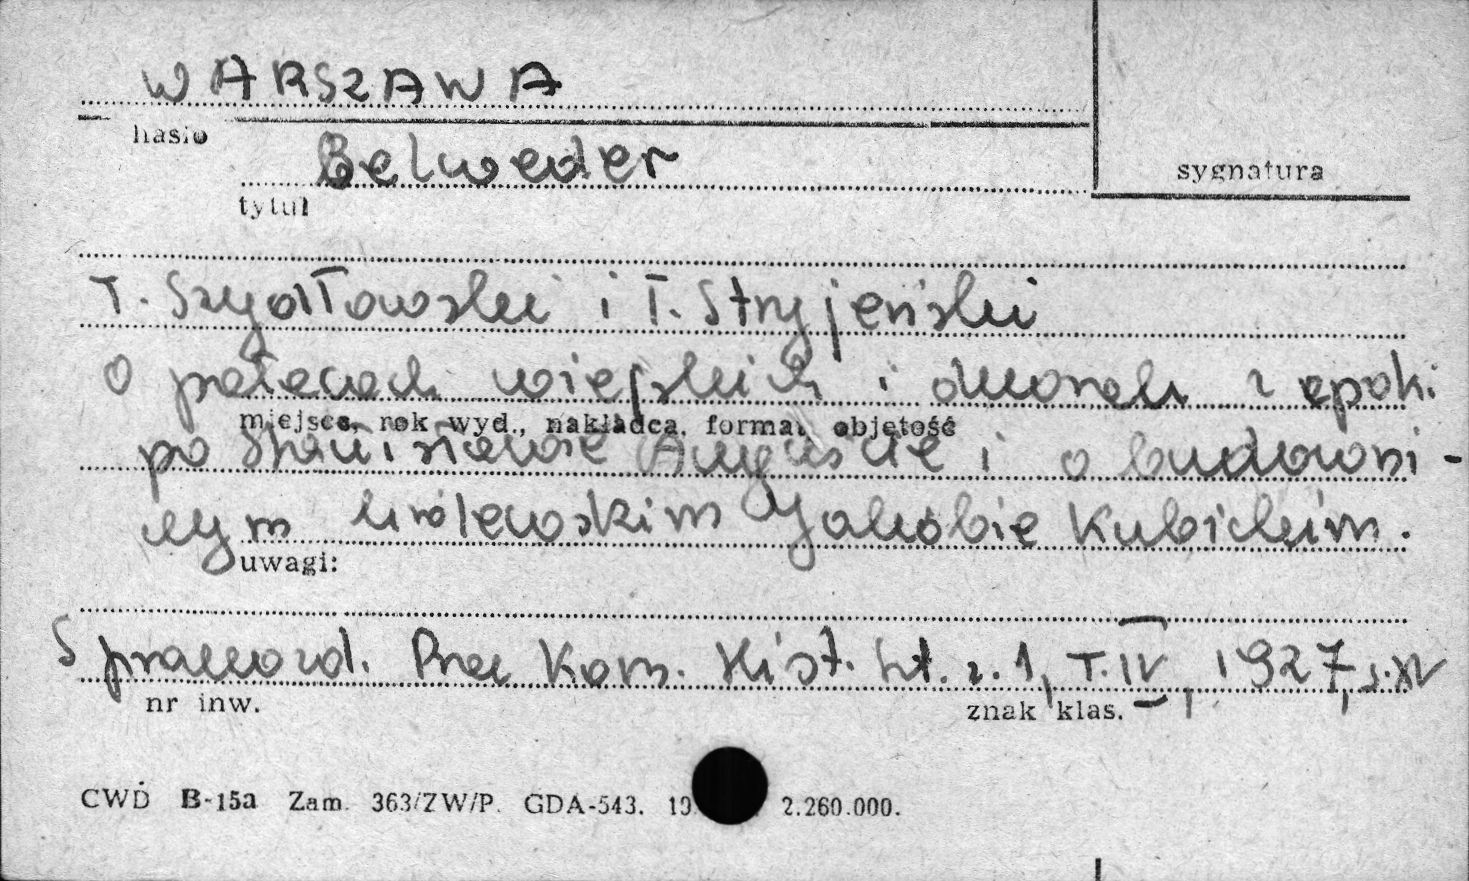 WARSZAWA
hasło
Belweder
sygnatura
tytuł
T. Szydłowski i T. Stryjeński
o pałacach wiejskich i dworach z epoki
miejsce, rok wyd., nakładca, format, objętość
po Stanisławie Auguście i o budowni-
czym królewskim Jakóbie Kubickim.
uwagi:
Sprawozd. Prac Kom. Hist. Szt. z. 1, T. IV, 1927, s. XV
nr inw.
znak klas.
CWD B-15a Zam. 363/ZW/P. GDA-543. 19 2.260.000.